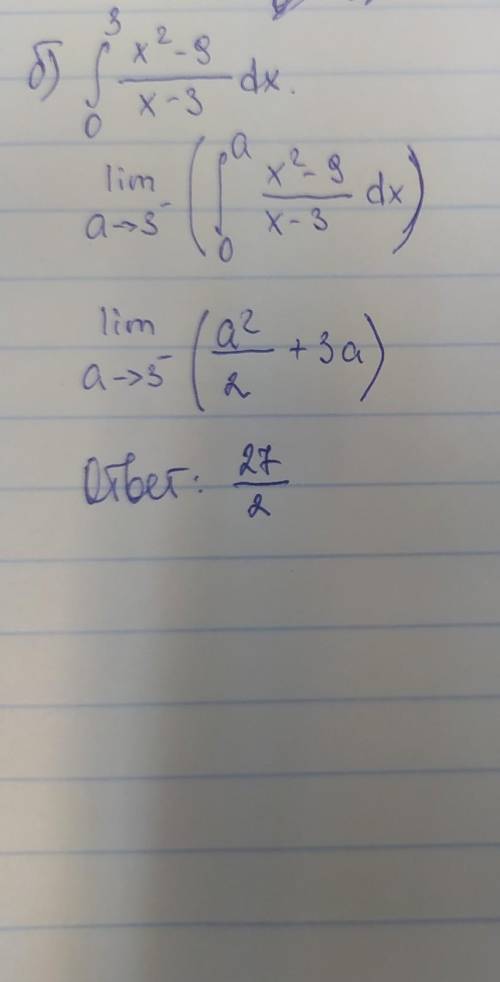 б) ∫₀³ (x² - 9)/(x - 3) dx.
lim a→3⁻ (∫₀ᵃ (x² - 9)/(x - 3) dx)
lim a→3⁻ (a²/2 + 3a)
Ответ: 27/2